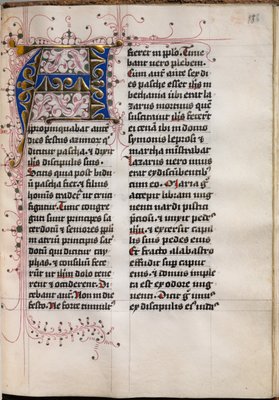 A
ppropinquabat aute
dies festus azimoꝝ qͥ
dicitur pascha. & dixit
ihs discipulis suis.
Scitis quia post biduū
pascha fiet. & filius
hominis tradetur ut cruci
figatur. Tunc congre
gati sunt principes sa
cerdotū & seniores ppli
in atriū principis sacer
dotū qui dicitur cay
phas. & consiliū fece
runt ut ihm dolo tene
rent & occiderent. Di
cebant aut. Non in die
festo. Ne forte tumult
fieret in pplo. Time
bant vero plebem.
Cum aut ante sex di
es pasche esset ihs in
bethania ubi erat la
zarus mortuus quē
suscitavit ihs fecerūt
ei cenā ibi in domo
symonis leprosi &
martha ministrabat
Lazarus vero unus
erat ex discubentib
cum eo. Maria
accepit libram ungu
enti nardi pistici
preciosi. & unxit pedes
ihu. & extersit capil
lis suis pedes eius
Et fracto alabastro
effudit sup caput
eius. & domus imple
ta est ex odore ungu
enti. Dixit unus
ex discipulis eius